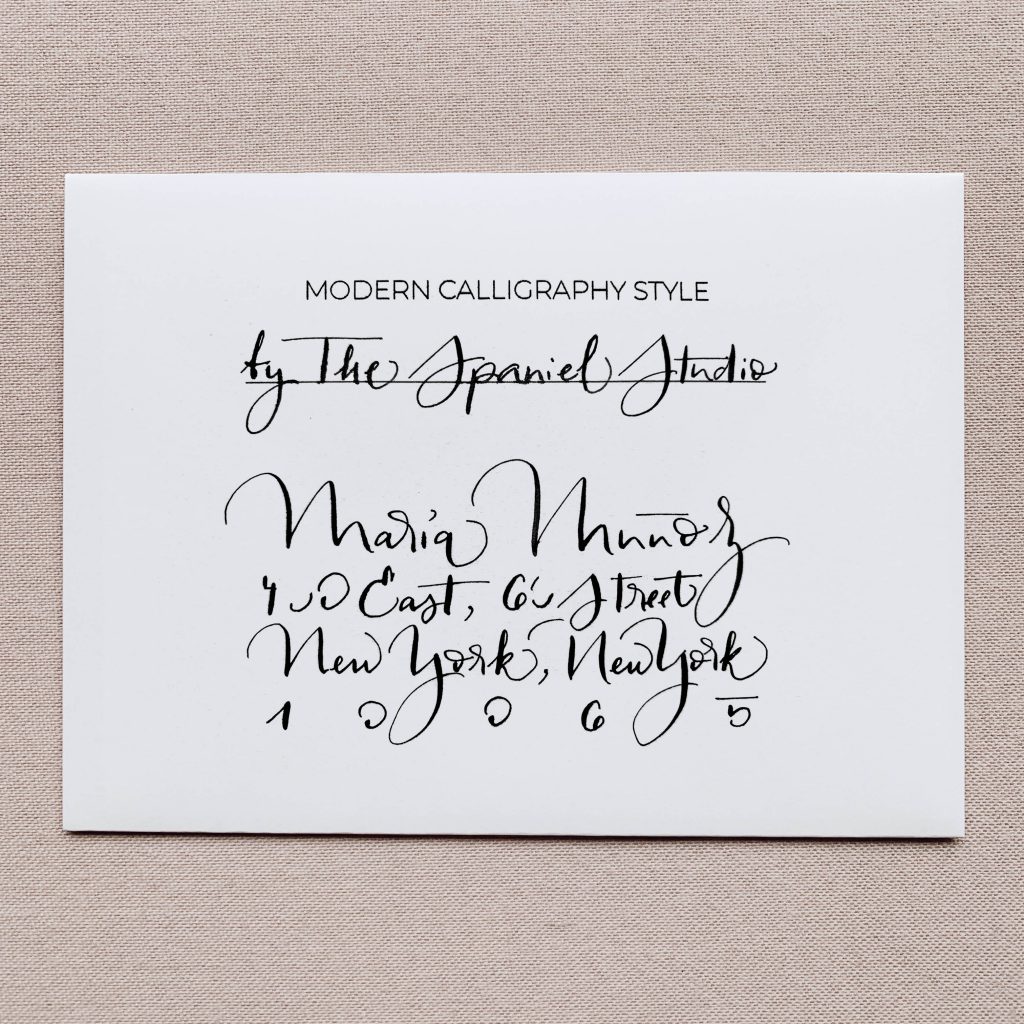 MODERN CALLIGRAPHY STYLE
by The Spaniel Studio
Maria Munoz
East, Street
New York, New York
1 0 0 6 5